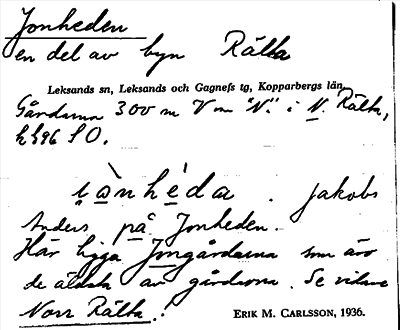 Jonheden
en del av byn Rälta
Leksands sn, Leksands och Gagnefs tg, Kopparbergs län.
Gårdarna 300 m V om "N." i N. Rälta,
h 596 SO.
i̯ònhèda . Jakobs
Anders på Jonheden.
Här ligga Jongårdarna som äro
de äldsta av gårdarna. Se vidare
Norr Rälta!
ERIK M. CARLSSON, 1936.